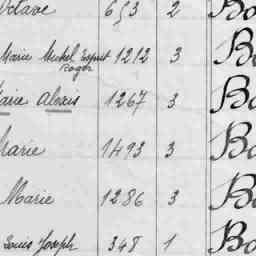 Octave 653 2 Bo
Marie Michel Esprit 1212 3 Bo
Roger
Marie Alexis 1267 3 Bo
Marie 1493 3 Bo
Marie 1286 3 Bo
Louis Joseph 348 1 Bo